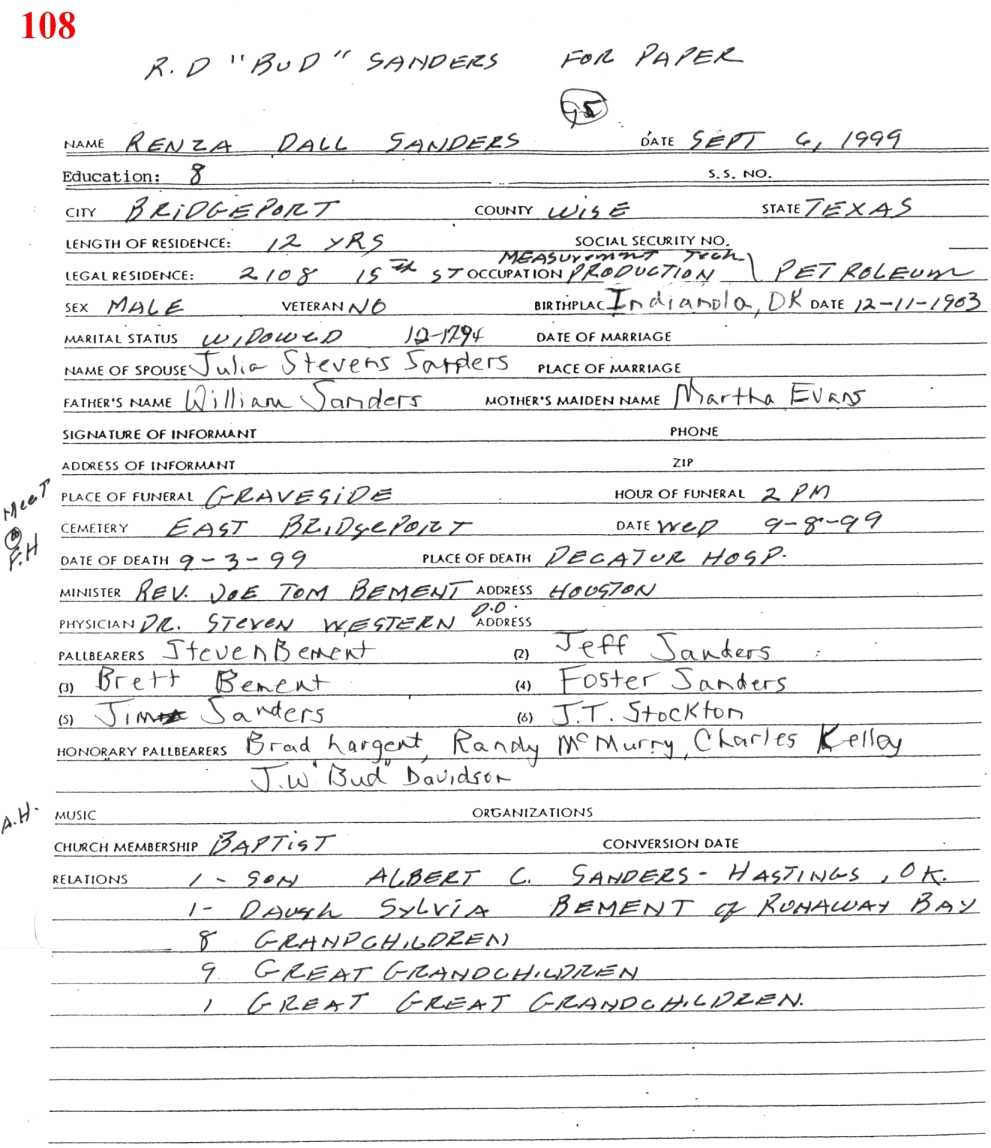 108
R.D "BUD" SANDERS FOR PAPER
95
NAME RENZA DALL SANDERS DATE SEPT 6, 1999
Education: 8 S.S. NO.
CITY BRIDGEPORT COUNTY WISE STATE TEXAS
LENGTH OF RESIDENCE: 12 YRS SOCIAL SECURITY NO.
MEASurement Tech
LEGAL RESIDENCE: 2108 15th ST OCCUPATION PRODUCTION \ PETROLEUM
SEX MALE VETERAN NO BIRTHPLAC Indianola, OK DATE 12-11-1903
MARITAL STATUS WIDOWED DATE OF MARRIAGE
NAME OF SPOUSE Julia Stevens Sanders PLACE OF MARRIAGE
FATHER'S NAME William Sanders MOTHER'S MAIDEN NAME Martha Evans
SIGNATURE OF INFORMANT PHONE
ADDRESS OF INFORMANT ZIP
PLACE OF FUNERAL GRAVESIDE HOUR OF FUNERAL 2 PM
Meet @ F.H
CEMETERY EAST BRIDgePORT DATE WED 9-8-99
DATE OF DEATH 9-3-99 PLACE OF DEATH DECATUR HOSP.
MINISTER REV. JOE TOM BEMENT ADDRESS HOUSTON
PHYSICIAN DR. STEVEN WESTERN D.O. ADDRESS
PALLBEARERS Steven Bement (2) Jeff Sanders
(3) Brett Bement (4) Foster Sanders
(5) Jim Sanders (6) J.T. Stockton
HONORARY PALLBEARERS Brad Largent, Randy McMurry, Charles Kelley
J.W "Bud" Davidson
A.H. MUSIC ORGANIZATIONS
CHURCH MEMBERSHIP BAPTIST CONVERSION DATE
RELATIONS 1 - SON ALBERT C. SANDERS - HASTINGS, OK.
1- DAUgh SYLVIA BEMENT of RUNAWAY BAY
8 GRANDCHILDREN
9 GREAT GRANDCHILDREN
1 GREAT GREAT GRANDCHILDREN.